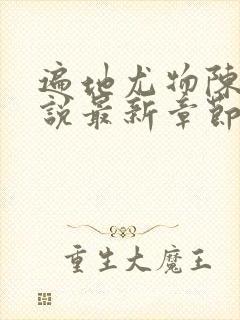 遍地尤物陈
說最新章節
重生大魔王